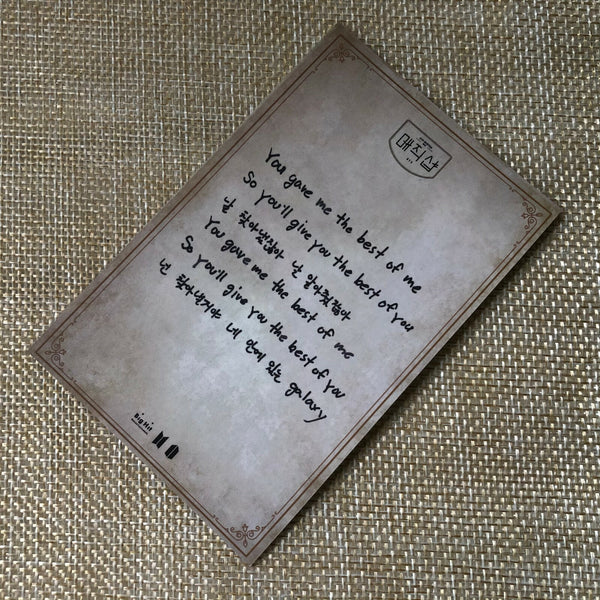 매직샵
You gave me the best of me
So you'll give you the best of you
날 찾아냈잖아 날 알아줬잖아
You gave me the best of me
So you'll give you the best of you
넌 찾아낼거야 네 안에 있는 galaxy
Big Hit